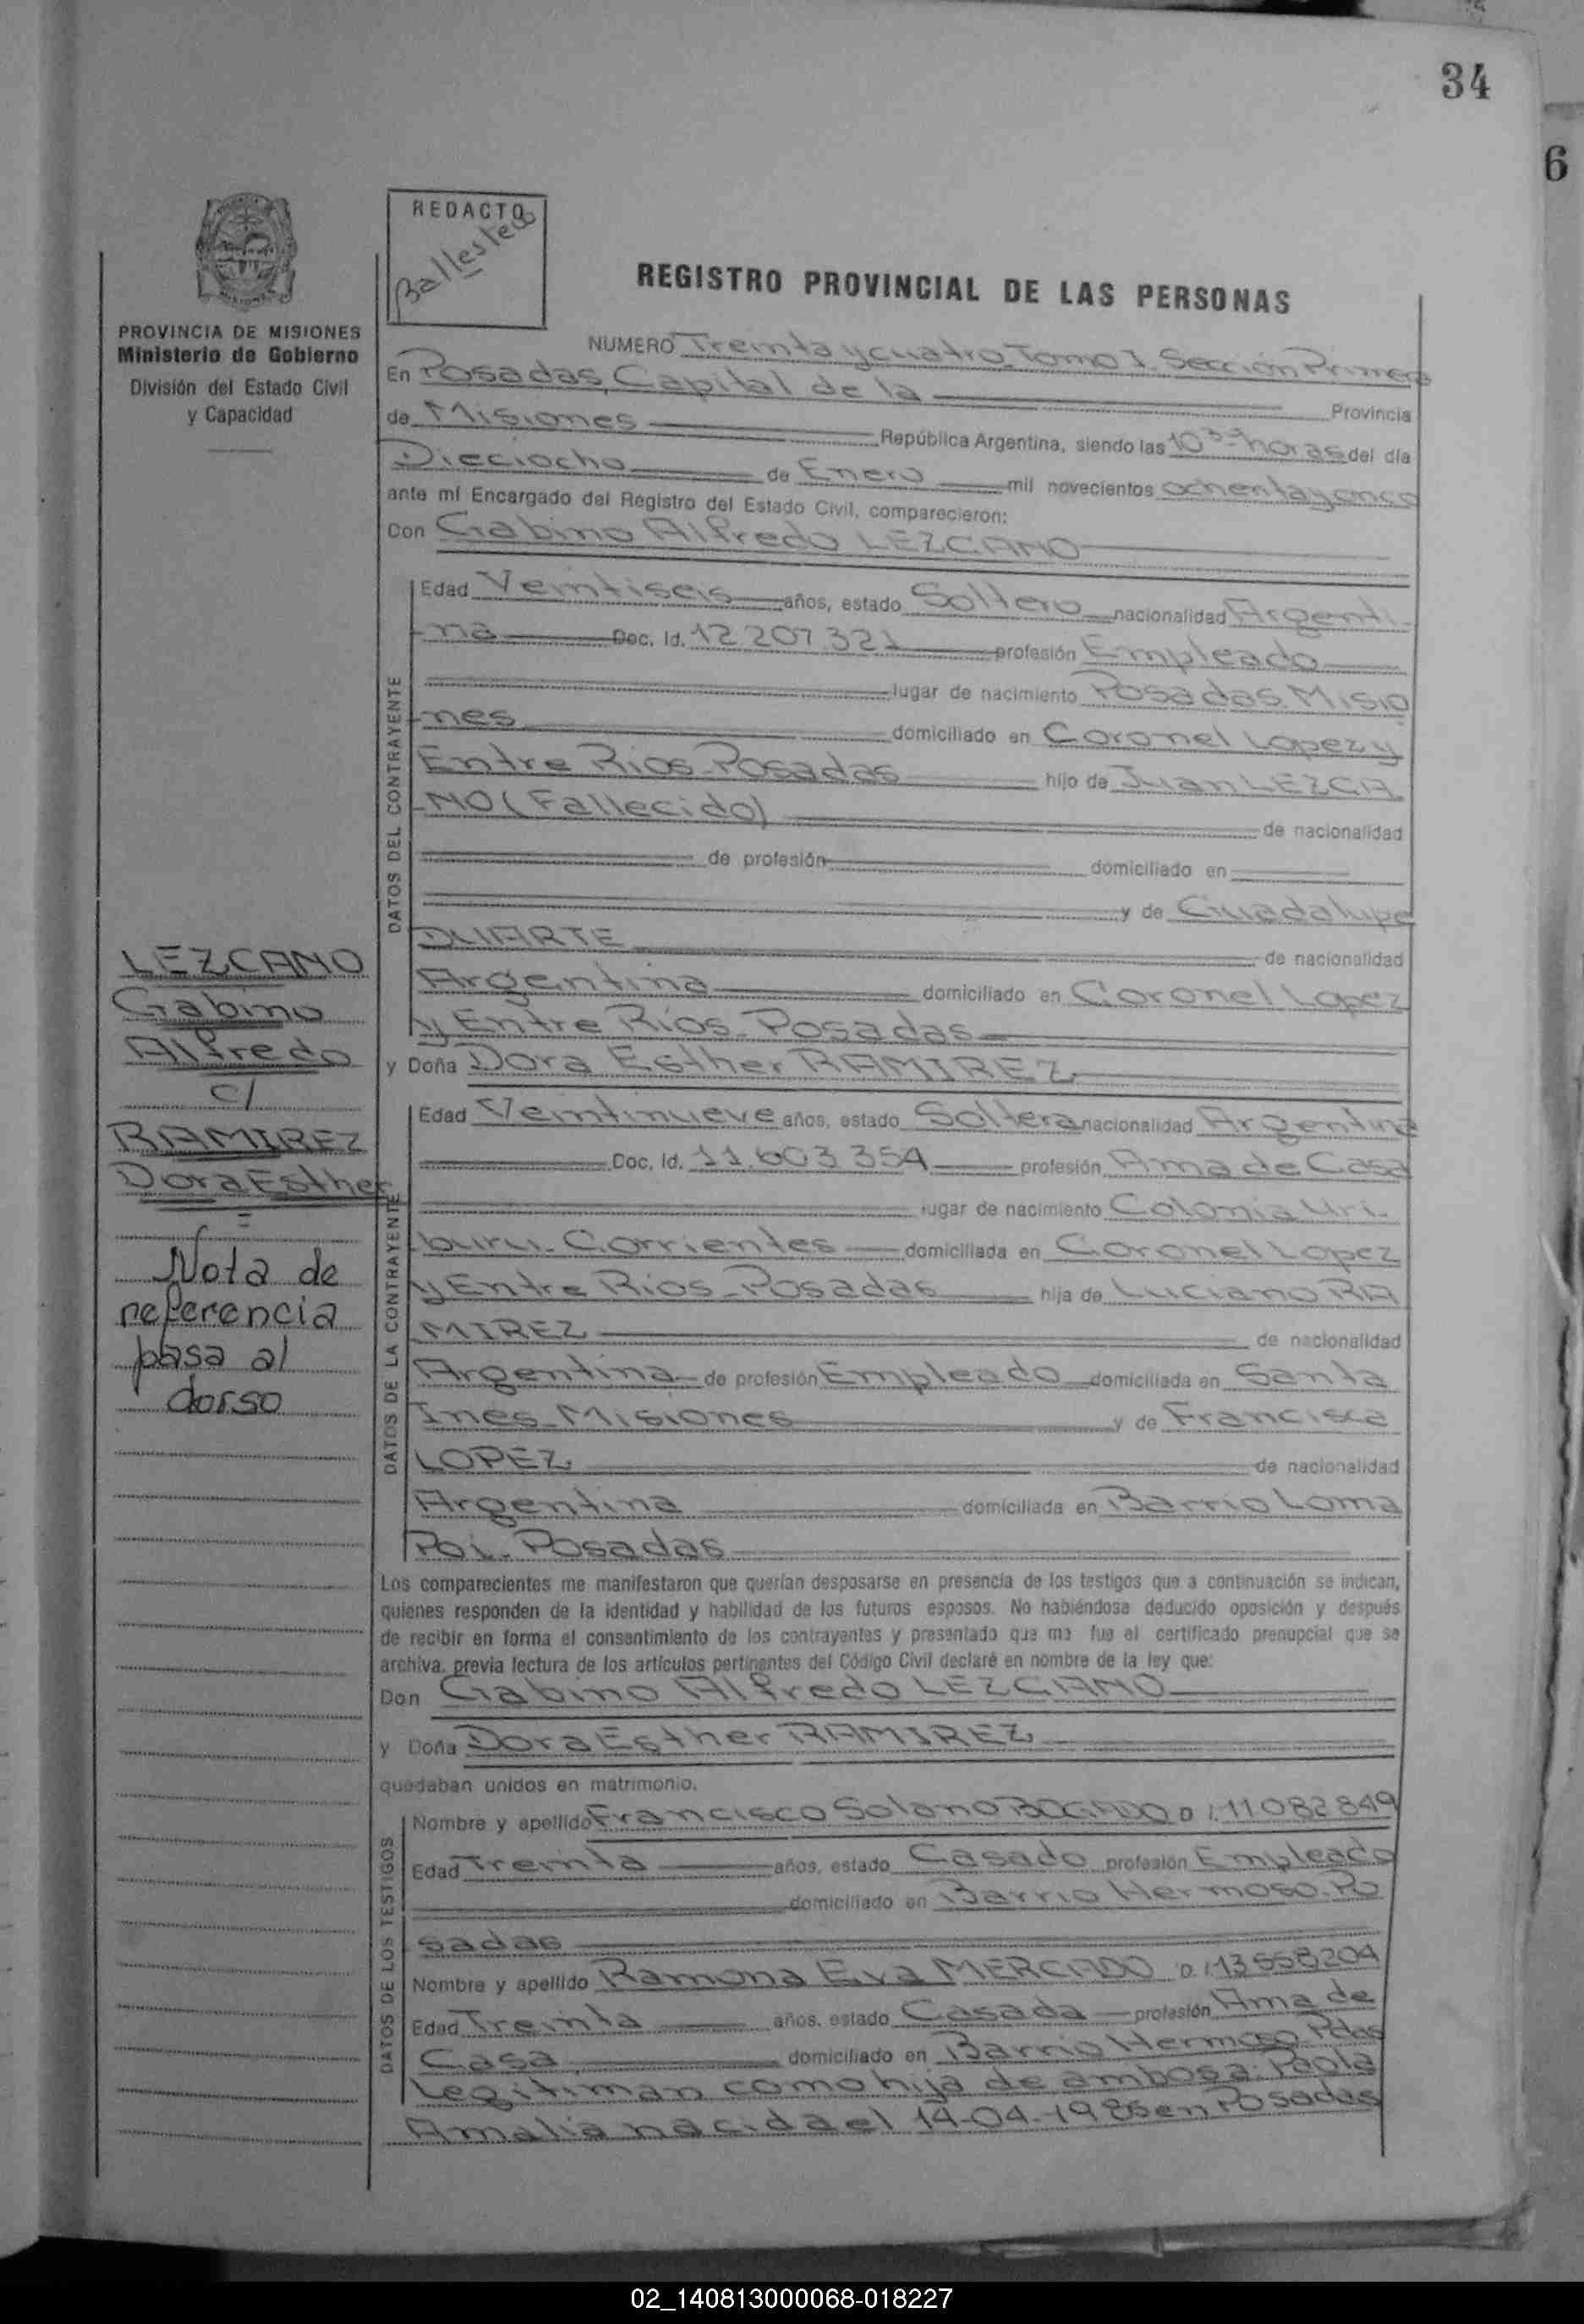 34
6
REDACTO
Ballested
PROVINCIA DE MISIONES
Ministerio de Gobierno
División del Estado Civil
y Capacidad
REGISTRO PROVINCIAL DE LAS PERSONAS
NUMERO Treinta y cuatro. Tomo I. Sección Primera
En Posadas, Capital de la Provincia
de Misiones República Argentina, siendo las 10 horas del día
Dieciocho de Enero mil novecientos ochenta y cinco
ante mí Encargado del Registro del Estado Civil, comparecieron:
Con Gabino Alfredo LEZCANO
DATOS DEL CONTRAYENTE
Edad Veintiseis años, estado Soltero nacionalidad Argenti-
na Doc. Id. 12.207.321 profesión Empleado
lugar de nacimiento Posadas Misio
nes domiciliado en Coronel Lopez y
Entre Rios-Posadas hijo de Juan LEZCA
NO (Fallecido) de nacionalidad
de profesión domiciliado en
y de Guadalupe
DUARTE de nacionalidad
Argentina domiciliado en Coronel Lopez
y Entre Rios-Posadas
y Doña Dora Esther RAMIREZ
LEZCANO
Gabino
Alfredo
c/
RAMIREZ
Dora Esther
=
Nota de
referencia
pasa al
dorso
DATOS DE LA CONTRAYENTE
Edad Veintinueve años, estado Soltera nacionalidad Argentina
Doc. Id. 11.603.354 profesión Ama de Casa
lugar de nacimiento Colonia Uri-
buru. Corrientes domiciliada en Coronel Lopez
y Entre Rios-Posadas hija de Luciano RA
MIREZ de nacionalidad
Argentina de profesión Empleado domiciliada en Santa
Ines-Misiones y de Francisca
LOPEZ de nacionalidad
Argentina domiciliada en Barrio Loma
Poi. Posadas
Los comparecientes me manifestaron que querían desposarse en presencia de los testigos que a continuación se indican,
quienes responden de la identidad y habilidad de los futuros esposos. No habiéndose deducido oposición y después
de recibir en forma el consentimiento de los contrayentes y presentado que me fue el certificado prenupcial que se
archiva, previa lectura de los artículos pertinentes del Código Civil declaré en nombre de la ley que:
Don Gabino Alfredo LEZCANO
y Doña Dora Esther RAMIREZ
quedaban unidos en matrimonio.
DATOS DE LOS TESTIGOS
Nombre y apellido Francisco Solano BOGADO D.I. 11082849
Edad Treinta años, estado Casado profesión Empleado
domiciliado en Barrio Hermoso. Po
sadas
Nombre y apellido Ramona Eva MERCADO D.I. 13558204
Edad Treinta años, estado Casada profesión Ama de
Casa domiciliado en Barrio Hermoso Pdas
Legitiman como hija de ambos a: Paola
Amalia nacida el 14-04-1985 en Posadas
02_140813000068-018227